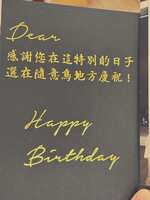 Dear
感謝您在這特別的日子
選在隨意鳥地方慶祝！
Happy
Birthday